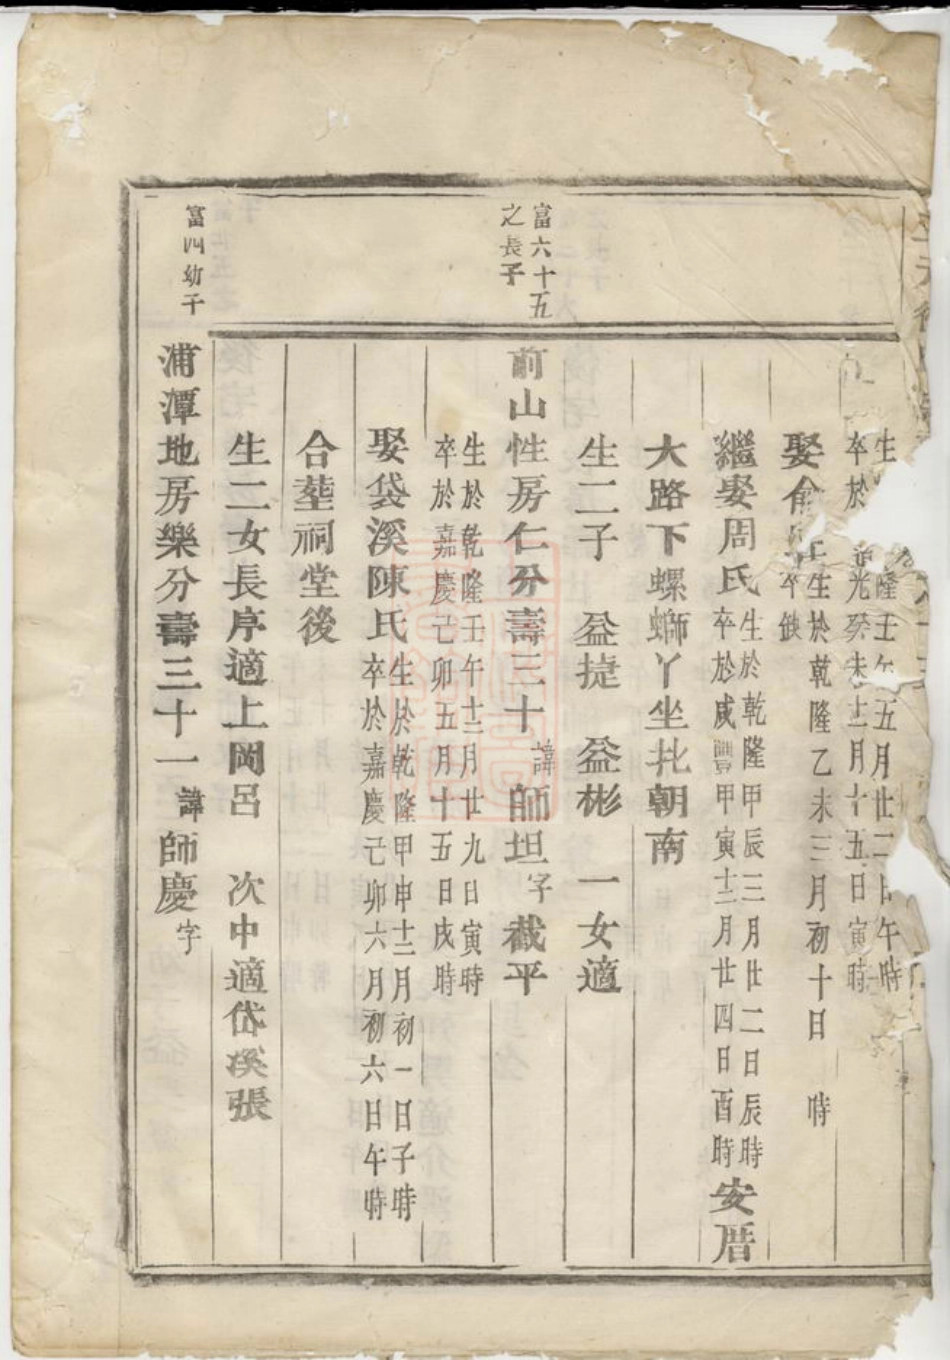 生隆壬午五月廿二日午時
卒於光癸未十二月十五日寅時
娶俞氏生於乾隆乙未三月初十日 時
卒缺
繼娶周氏生於乾隆甲辰三月廿二日辰時
卒於咸豐甲寅十二月廿四日酉時
安厝
大路下螺螄丫坐北朝南
生二子 益捷 益彬 一女適
富六十五
之長子
前山性房仁分壽三十諱師坦字截平
生於乾隆壬午十二月廿九日寅時
卒於嘉慶己卯五月十五日戌時
娶袋溪陳氏生於乾隆甲申十二月初一日子時
卒於嘉慶己卯六月初六日午時
合塟祠堂後
生二女長序適上岡呂 次中適岱溪張
富四幼子
浦潭地房樂分壽三十一諱師慶字